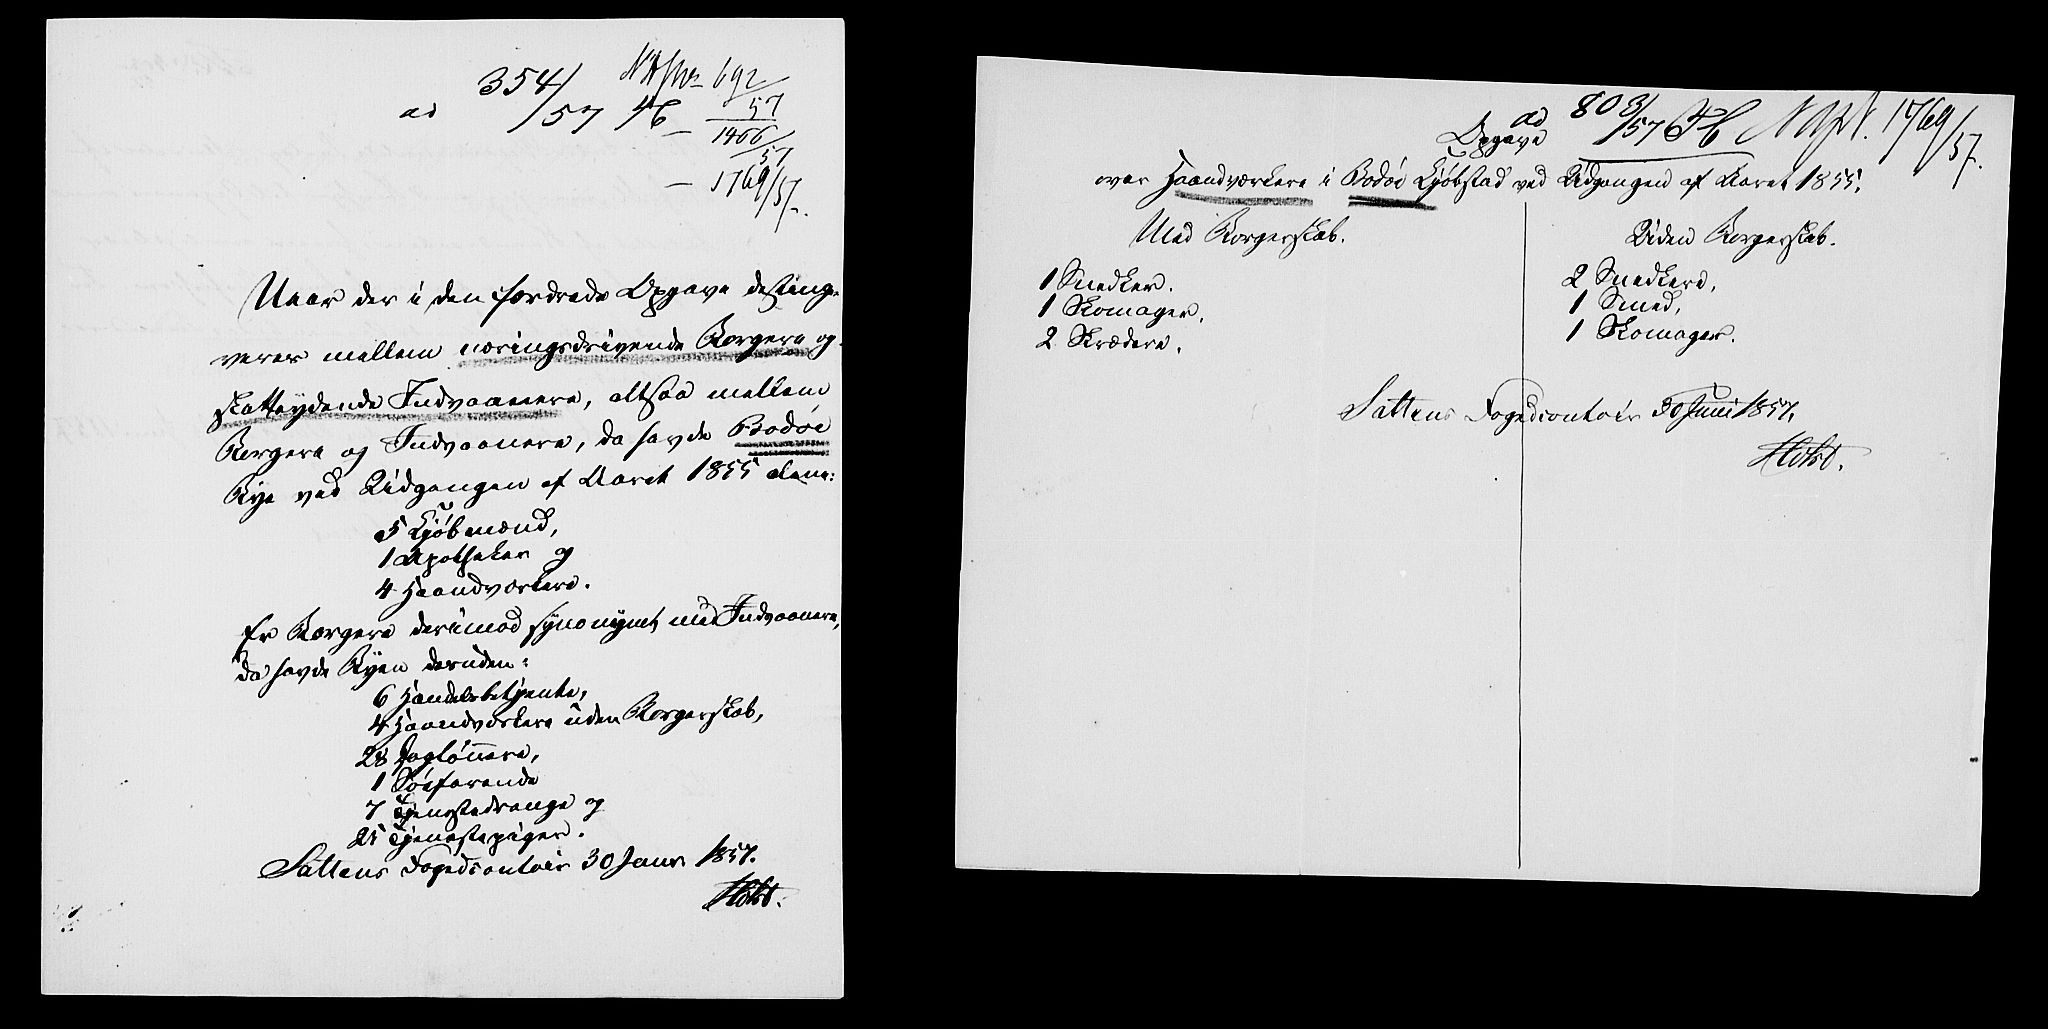 ad 354/57 Hb
692/57
- 1466/57
- 1769/57.
Naar der i den fordrede Opgave disting-
verer mellem næringsdrivende Borgere og
skatteydende Indvaanere, altsaa mellem
Borgere og Indvaanere, da havde Bodøe
Bye ved Udgangen af Aaret 1855 alene:
5 Kjøbmænd,
1 Apotheker og
4 Haandværkere.
Er Borgere derimod synonymt med Indvaanere,
da havde Byen desuden:
6 Handelsbetjente,
4 Haandværkere uden Borgerskab,
28 Daglønnere,
1 Søefarende
7 Tjenestedrenge og
25 Tjenestepiger.
Saltens Fogedcontoir 30 Janr 1857.
Holst.
ad 803/57 Hb 1769/57.
Opgave
over Haandværkere i Bodøe Kjøbstad ved Udgangen af Aaret 1855.
Med Borgerskab.
1 Snedker.
1 Skomager.
2 Skrædere.
Uden Borgerskab.
2 Snedkere,
1 Smed,
1 Skomager.
Saltens Fogedcontoir 30 Juni 1857.
Holst.